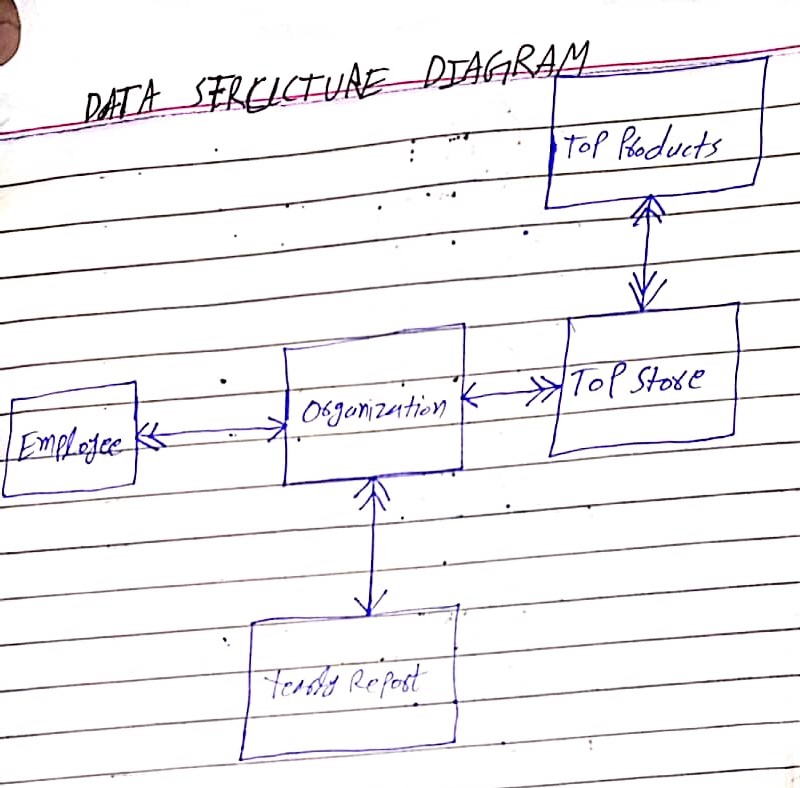 DATA STRUCTURE DIAGRAM
Top Products
Top Store
Organization
Employee
Yearly Report